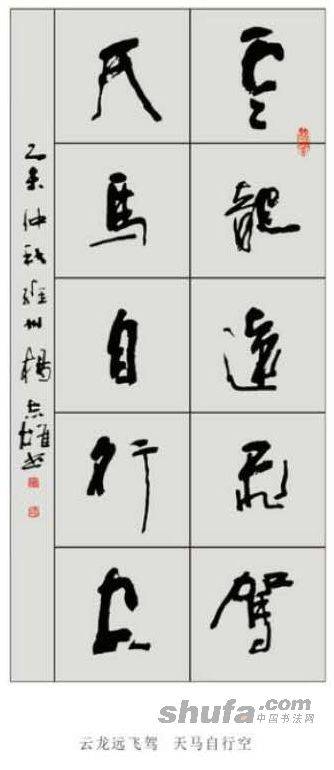 雲龍遠飛駕
天馬自行空
乙未仲秋 州楊志雄書
shufa.com
中国书法网
云龙远飞驾 天马自行空